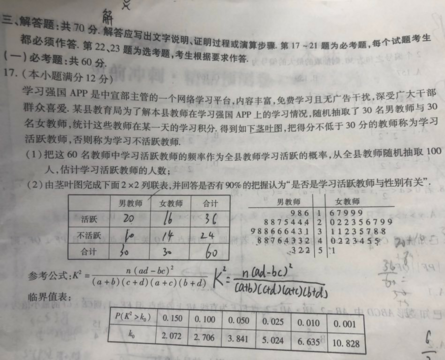 解
三、解答题:共70分.解答应写出文字说明、证明过程或演算步骤.第17~21题为必考题,每个试题考生
都必须作答.第22,23题为选考题,考生根据要求作答.
(一)必考题:共60分.
17.(本小题满分12分)
学习强国APP是中宣部主管的一个网络学习平台,内容丰富,免费学习且无广告干扰,深受广大干部
群众喜爱.某县教育局为了解本县教师在学习强国APP上的学习情况,随机抽取了30名男教师与30
名女教师,统计这些教师在某一天的学习积分.得到如下茎叶图,把得分不低于30分的教师称为学习
活跃教师,否则称为学习不活跃教师.
(1)把这60名教师中学习活跃教师的频率作为全县教师学习活跃的概率,从全县教师随机抽取100
人,估计学习活跃教师的人数;
(2)由茎叶图完成下面2×2列联表,并回答是否有90%的把握认为“是否是学习活跃教师与性别有关”.
男教师 女教师 合计
活跃 20 16 36
不活跃 10 14 24
合计 30 30 60
男教师 女教师
9 8 6 1 6 7 9 9 9
8 8 7 5 4 4 4 2 0 2 2 3 5 6 7 9 9
9 8 8 6 6 6 4 3 1 3 1 1 2 3 5 7 8 8
8 8 7 6 4 3 3 2 4 0 2 2 3 4 5 5
3 2 2 5 1
参考公式:K²=n(ad-bc)²/(a+b)(c+d)(a+c)(b+d) K²=n(ad-bc)²/(a+b)(c+d)(a+c)(b+d)
临界值表:
P(K²>k₀) 0.150 0.100 0.050 0.025 0.010 0.001
k₀ 2.072 2.706 3.841 5.024 6.635 10.828